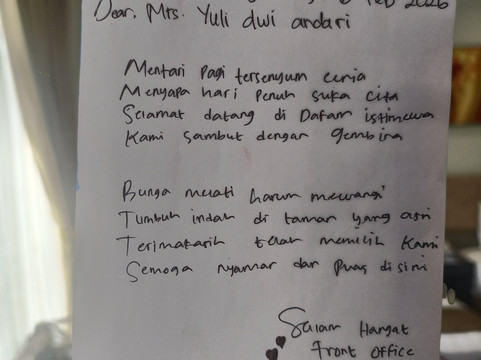 Feb 2026
Dear, Mrs. Yuli dwi andari
Mentari Pagi tersenyum ceria
Menyapa hari Penuh suka cita
Selamat datang di Dafam istimewa
Kami sambut dengar gembira
Bunga melati harum mewangi
Tumbuh indah di taman yang asri
Terimakasih telah memilih Kami
Semoga nyaman dan Puas disini
Salam Hangat
Front Office